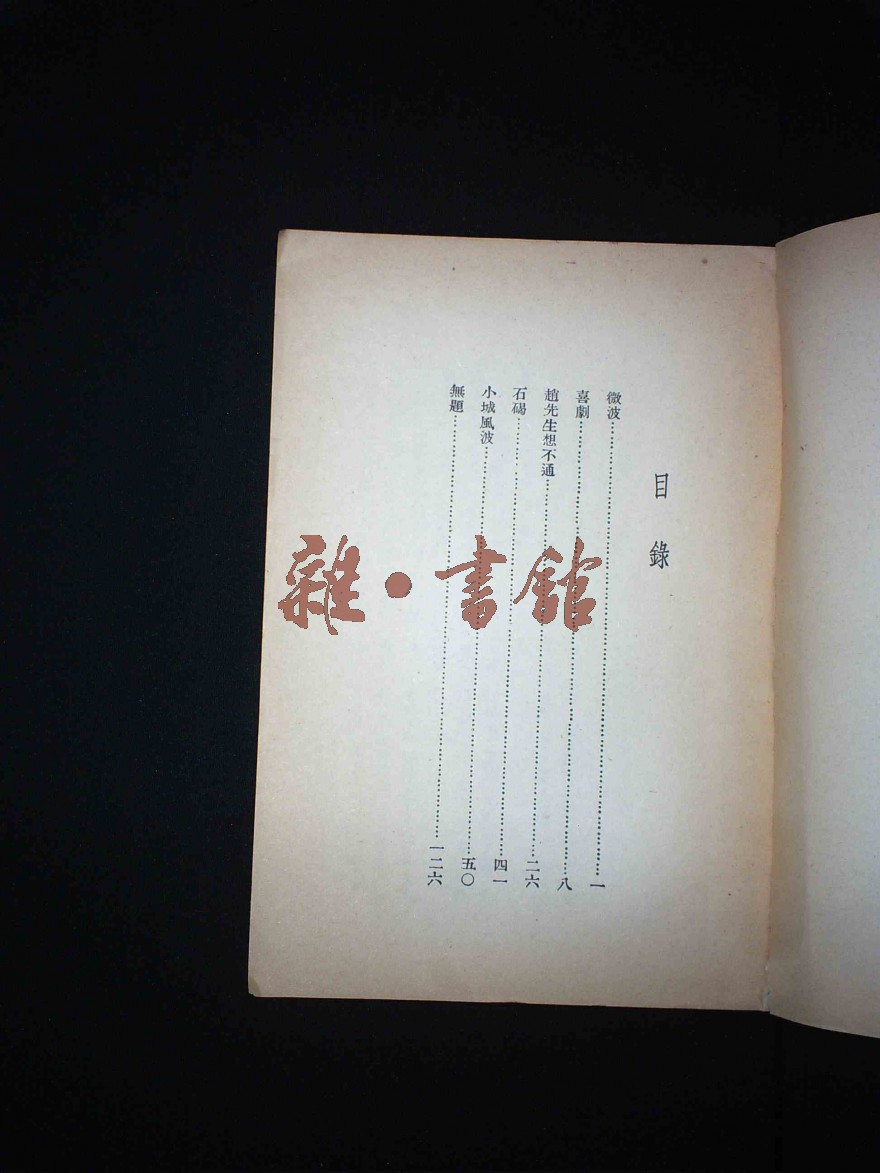 目錄
微波⋯⋯⋯⋯⋯⋯⋯⋯一
喜劇⋯⋯⋯⋯⋯⋯⋯⋯八
趙先生想不通⋯⋯⋯⋯⋯⋯⋯⋯二六
石碭⋯⋯⋯⋯⋯⋯⋯⋯四一
小城風波⋯⋯⋯⋯⋯⋯⋯⋯五〇
無題⋯⋯⋯⋯⋯⋯⋯⋯一二六
雜·書館